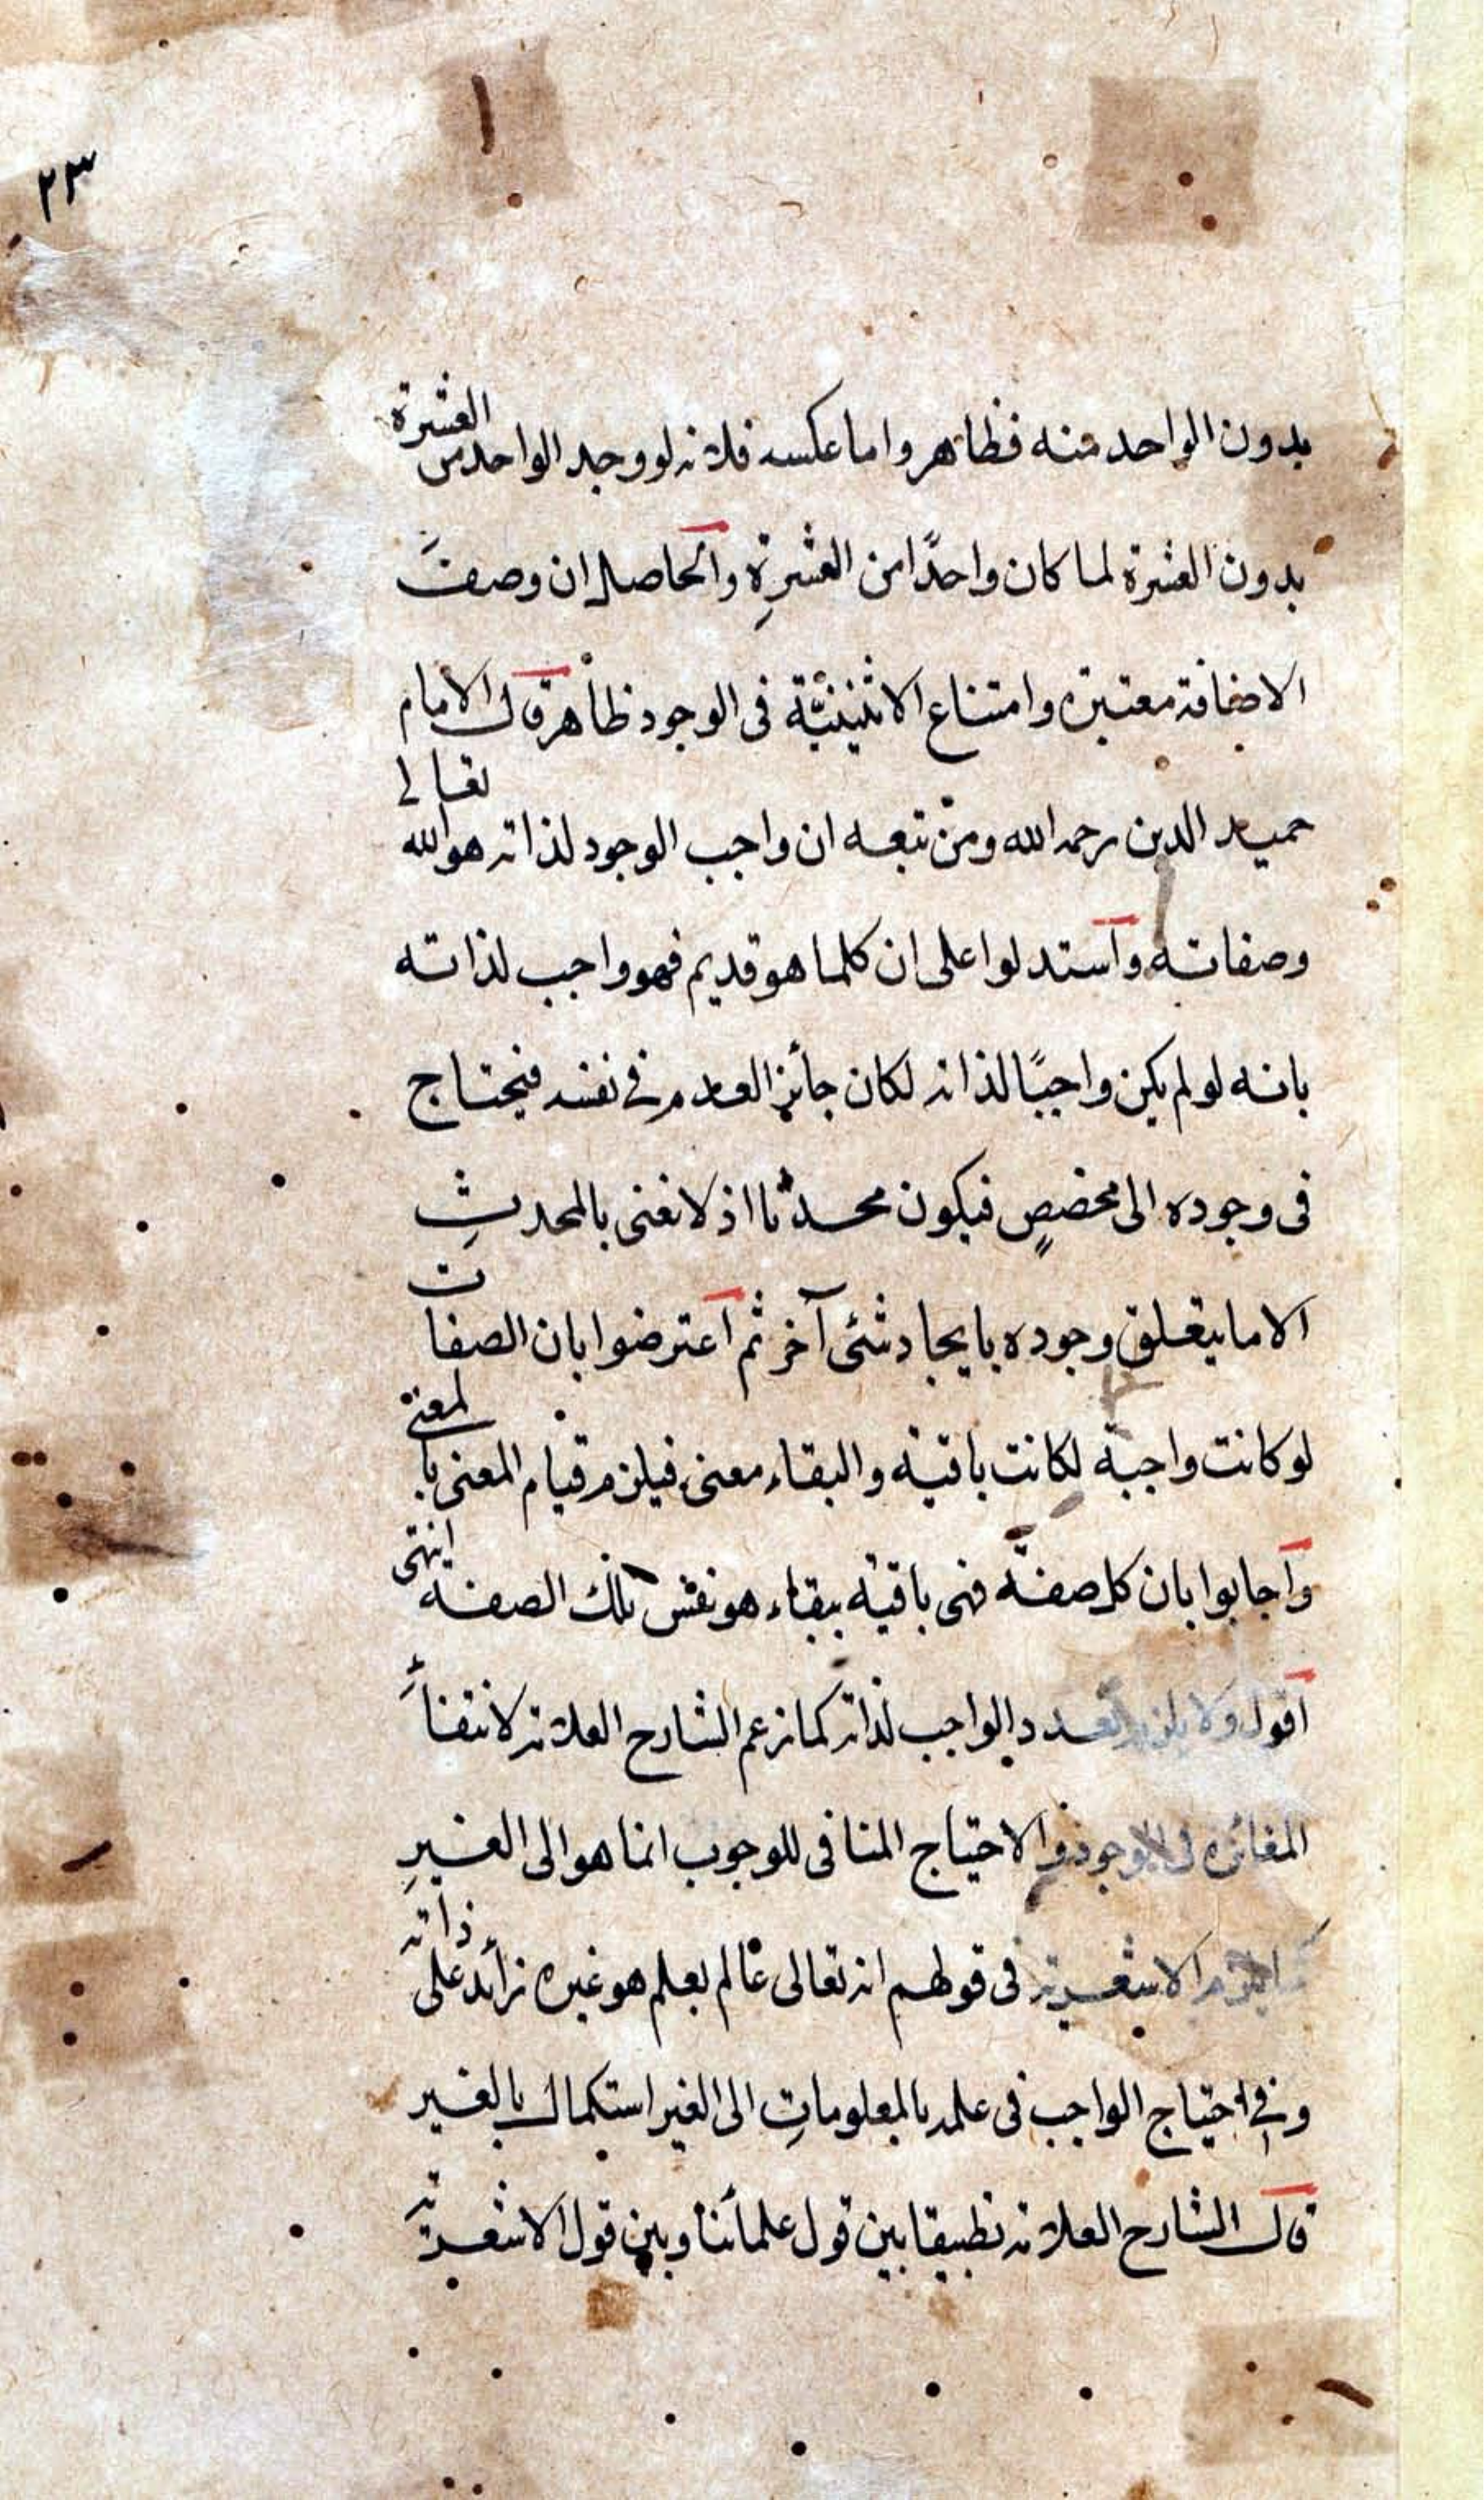 ٢٣
بدون الواحد منه فظاهر واما عكسه فلانه لو وجد الواحد من العشرة
بدون العشرة لما كان واحدًا من العشرةِ والحاصل ان وصفَ
الاضافة معتبرة وامتناع الاثنينيّة فى الوجود ظاهر قال الامام
حميد الدين رحمه الله ومن تبعه ان واجب الوجود لذاته هو الله تعالى
وصفاته واستدلوا على ان كلما هو قديم فهو واجب لذاته
بانه لو لم يكن واجبًا لذاته لكان جائز العدم فى نفسه فيحتاج
فى وجوده الى مخصصٍ فيكون محدثا اذ لا نعنى بالمحدثِ
الا ما يتعلق وجوده بايجاد شئى آخر ثم اعترضوا بان الصفات
لو كانت واجبة لكانت باقية والبقاء معنى فيلزم قيام المعنى بالمعنى
واجابوا بان كل صفة فهى باقية ببقاء هو نفس تلك الصفة انتهى
اقول ولا يلزم تعدد الواجب لذاته كما زعم الشارح العلامة لانتفأ
المغائرة فى الوجود والاحتياج المنافى للوجوب انما هو الى الغيرِ
الاشعرية فى قولهم انه تعالى عالم بعلم هو غيره زائد على ذاته
وفى احتياج الواجب فى علمه بالمعلوماتِ الى الغير استكمال بالغير
قال الشارح العلامة تطبيقا بين قول علمائنا وبين قول الاشعرية